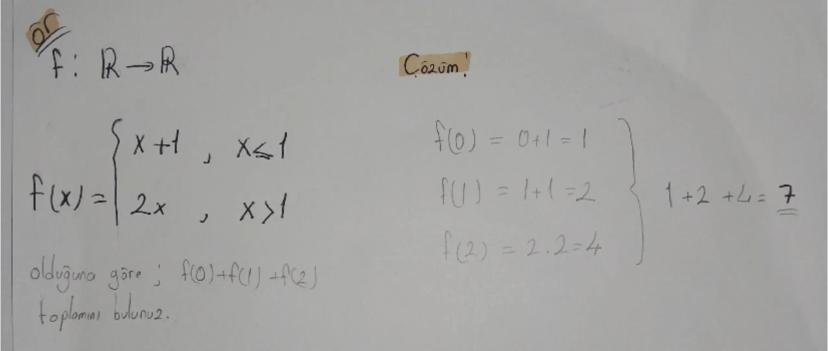 ör
f: ℝ → ℝ
f(x) = { x+1 , x≤1
2x , x>1
olduğuna göre ; f(0)+f(1)+f(2)
toplamını bulunuz.
Çözüm!
f(0) = 0+1 = 1
f(1) = 1+1 = 2
f(2) = 2.2 = 4
} 1+2+4 = 7